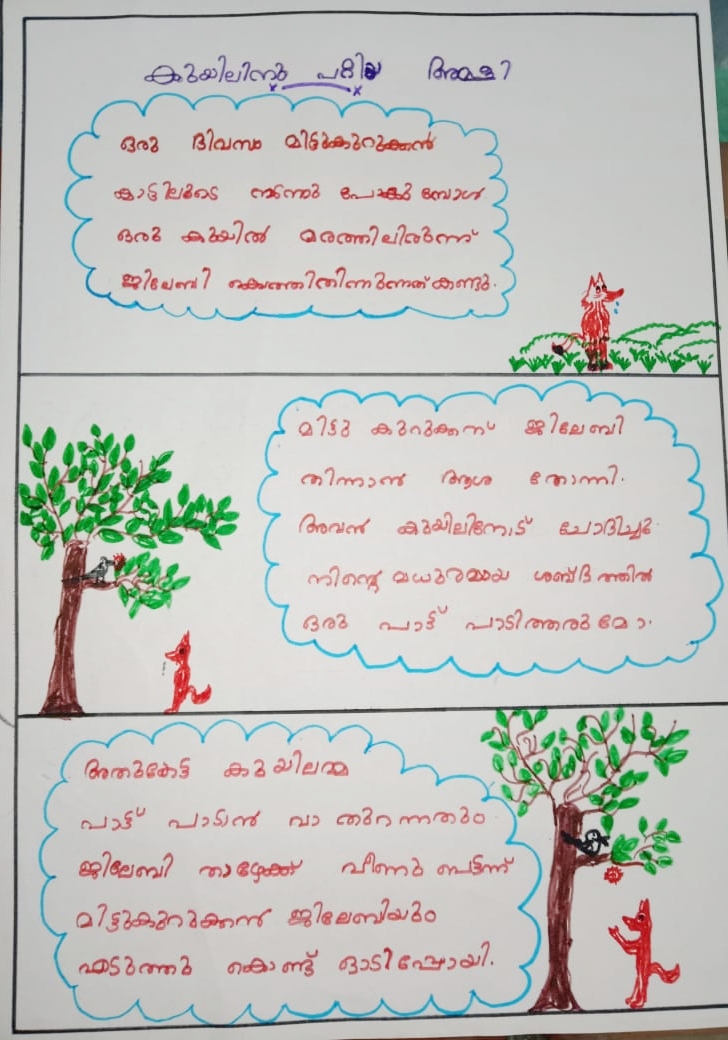 കുയിലിനു പറ്റിയ അമളി
ഒരു ദിവസം മിട്ടുകുറുക്കൻ
കാട്ടിലൂടെ നടന്നു പോകുമ്പോൾ
ഒരു കുയിൽ മരത്തിലിരുന്ന്
ജിലേബി കൊത്തിതിന്നുന്നത് കണ്ടു.
മിട്ടു കുറുക്കന് ജിലേബി
തിന്നാൻ ആശ തോന്നി.
അവൻ കുയിലിനോട് ചോദിച്ചു
നിന്റെ മധുരമായ ശബ്ദത്തിൽ
ഒരു പാട്ട് പാടിത്തരുമോ.
അതുകേട്ട കുയിലമ്മ
പാട്ട് പാടാൻ വാ തുറന്നതും
ജിലേബി താഴേക്ക് വീണു പെട്ടന്ന്
മിട്ടുകുറുക്കൻ ജിലേബിയും
എടുത്തു കൊണ്ട് ഓടിപ്പോയി.